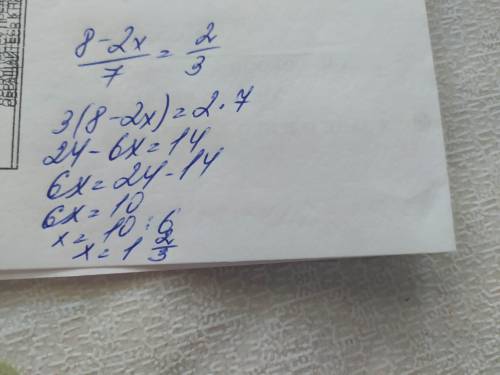 8-2x/7 = 2/3
3(8-2x)=2·7
24-6x=14
6x=24-14
6x=10
x=10:6
x=1 2/3